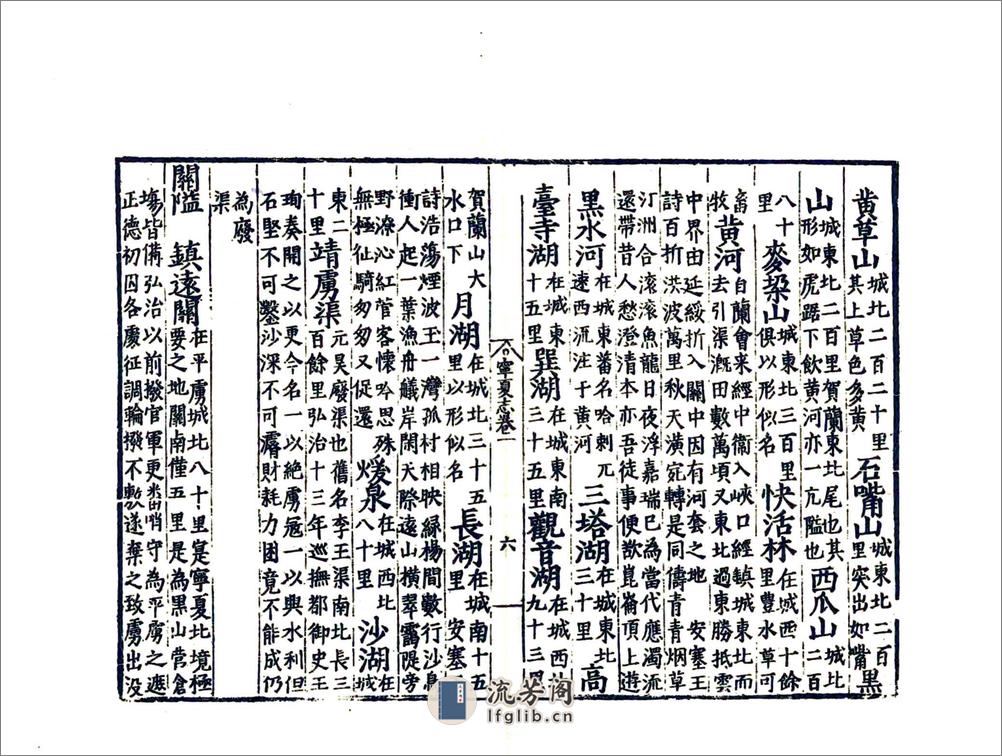 黃草山城北二百二十里其上草色多黃石嘴山城東北二百里突出如嘴黑
山城東北二百里賀蘭東北尾也其形如虎踞下飲黃河亦一亢隘也西瓜山城北二百
八十里麥垛山城東北三百里俱以形似名快活林在城西十餘里豐水草可
畜牧黃河自蘭會來經中衞入峽口經鎮城東而去引渠溉田數萬頃又東北過東勝抵雲
中界由延綏折入關中因有河套之地 安塞王詩百折洪波萬里秋天潢宛轉是同儔青青烟草
汀洲合滾滾魚龍日夜浮嘉瑞已為當代應濁流還帶昔人愁澄清本亦吾徒事便欲崑崙頂上遊
黑水河在城東蕃名哈剌兀速西流注于黃河三塔湖在城東北三十里高
臺寺湖在城東十五里巽湖在城東南三十五里觀音湖在城西九十三里
寧夏志卷一 六
賀蘭山大水口下月湖在城北三十五里以形似名長湖在城南十五里 安塞
詩浩蕩煙波玉一灣孤村相映綠楊間數行沙鳥衝人起一葉漁舟艤岸閑天際遠山橫翠靄隄旁
野潦沁紅管客懷吟思殊無極仙騎匆匆又促還煖泉在城西北八十里沙湖在城
東二十里靖虜渠元昊廢渠也舊名李王渠南北長三百餘里弘治十三年巡撫都御史王
珣奏開之以更今名一以絶虜寇一以興水利但石堅不可鑿沙深不可濬財耗力困竟不能成仍
為廢渠
關隘 鎮遠關在平虜城北八十里寔寧夏北境極要之地關南僅五里是為黑山營倉
場皆備弘治以前撥官軍更畨哨守為平虜之遮正德初因各處征調輪撥不敷遂棄之致虜出没
流芳阁
lfglib.cn